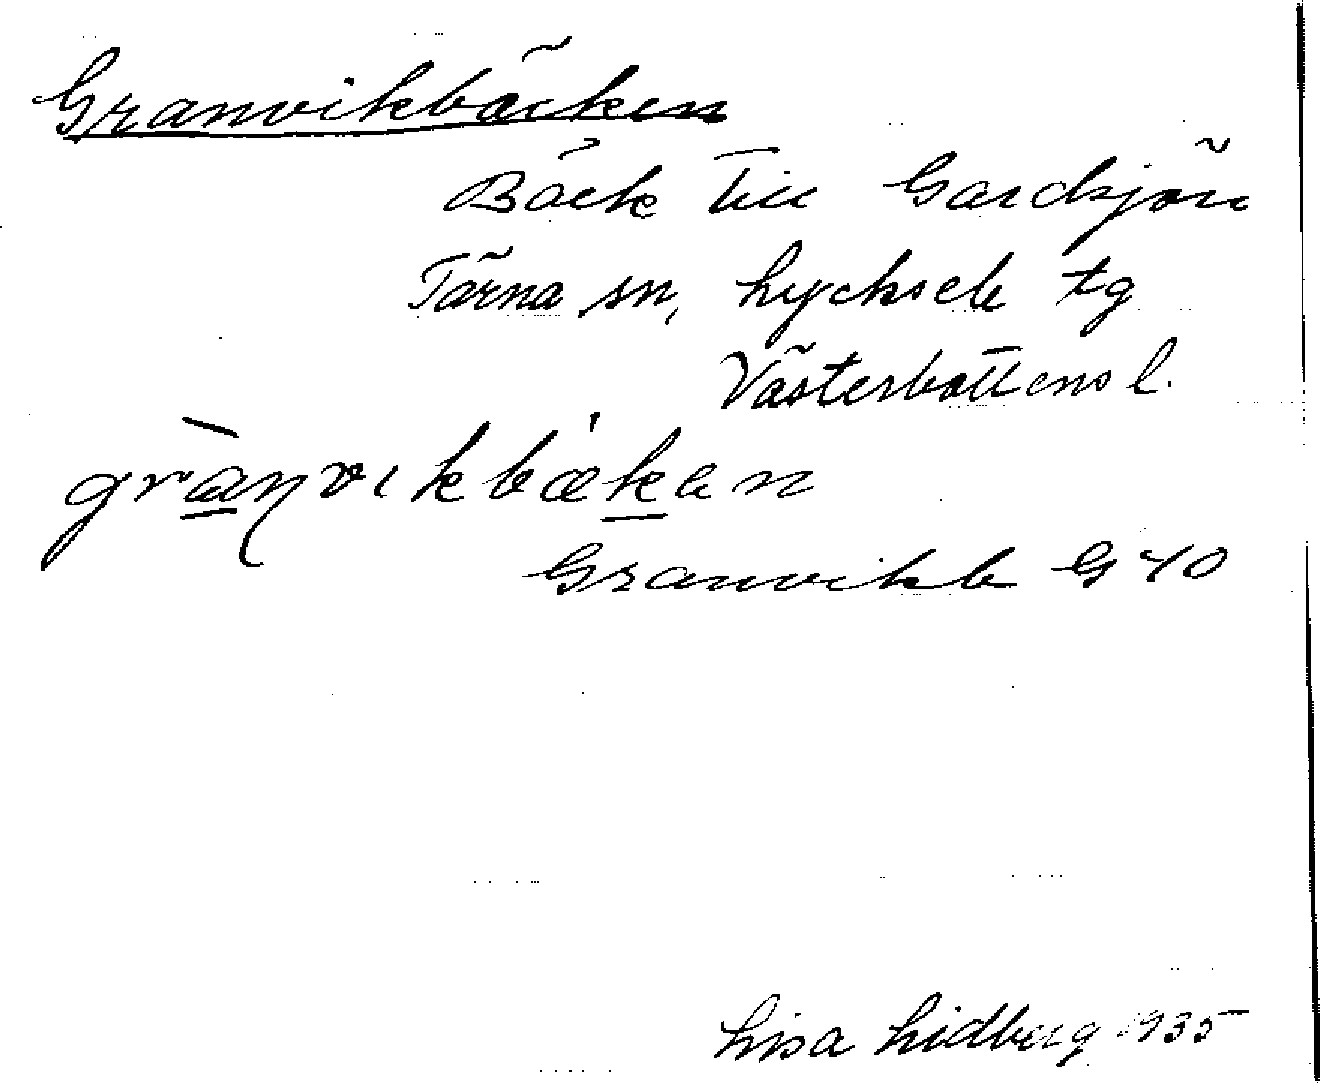 Granvikbäcken
Bäck till Gardsjön
Tärna sn, Lycksele tg
Västerbottens l.
grànvikbækan
Granvikb G 40
Lisa Lidberg 1935